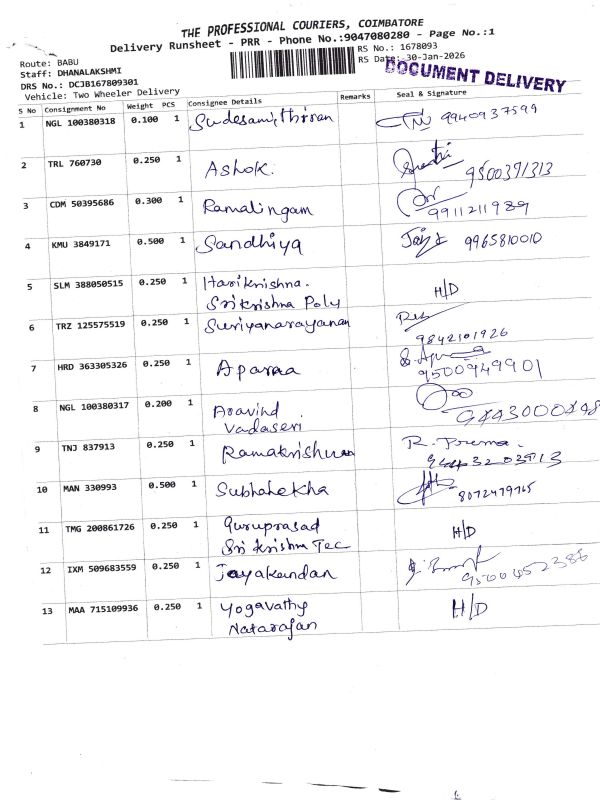 THE PROFESSIONAL COURIERS, COIMBATORE
Delivery Runsheet - PRR - Phone No.:9047080280 - Page No.:1
Route: BABU
RS No.: 1678093
Staff: DHANALAKSHMI
RS Date: 30-Jan-2026
DRS No.: DCJB167809301
DOCUMENT DELIVERY
Vehicle: Two Wheeler Delivery
S No Consignment No Weight PCS Consignee Details Remarks Seal & Signature
1 NGL 100380318 0.100 1 9940937599
2 TRL 760730 0.250 1 Ashok. 9500391313
3 CDM 50395686 0.300 1 Ramalingam 9911211989
4 KMU 3849171 0.500 1 Sandhiya 9965810010
5 SLM 388050515 0.250 1 Harikrishna. H/D
Srikrishna Poly
6 TRZ 125575519 0.250 1 Suriyanarayanan
9842101926
7 HRD 363305326 0.250 1 Aparna
9500949901
8 NGL 100380317 0.200 1 Aravind
Vadaseri
9 TNJ 837913 0.250 1 Ramakrishnan R. Prema.
10 MAN 330993 0.500 1 Subhalekha 8072479765
11 TMG 200861726 0.250 1 Guruprasad H/D
Sri Krishna Tec
12 IXM 509683559 0.250 1 Jayakandan 9500452386
13 MAA 715109936 0.250 1 Yogavathy H/D
Natarajan